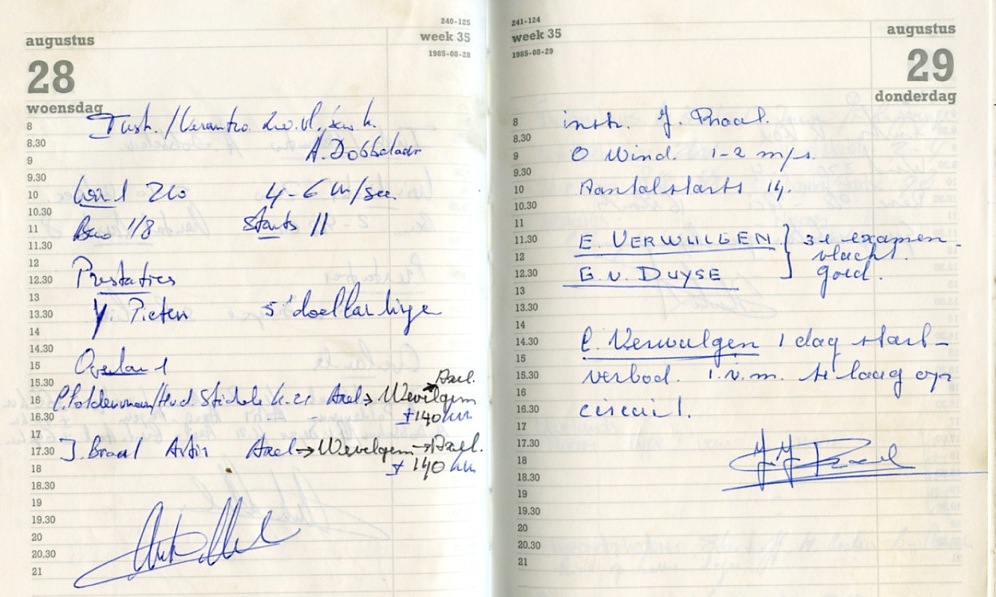 augustus
240-125
week 35
1985-08-28
28
woensdag
8
8.30
A. Dobbelaer
9
9.30
10
210 4-6 m/sec.
10.30
11
1/8 Starts 11
11.30
12
Prestaties
12.30
13
Y Pieters 5 doellandingen
13.30
14
14.30
Overland
15
15.30
Axel.
16
Axel → Wevelgem
16.30
± 140 km
17
17.30
J. Braal Astir Axel → Wevelgem → Axel.
18
± 140 km
18.30
19
19.30
20
20.30
21
241-124
week 35
1985-08-29
augustus
29
donderdag
8
instr. J. Braal.
8.30
9
O Wind. 1-2 m/s.
9.30
10
Aantal starts 14.
10.30
11
11.30
E. VERWILGEN 3e examen-
12
vlucht.
12.30
G. v. DUYSE goed.
13
13.30
14
14.30
E. Verwilgen 1 dag start-
15
15.30
verbod. i.v.m. te laag op
16
16.30
circuit.
17
17.30
18
18.30
19
19.30
20
20.30
21